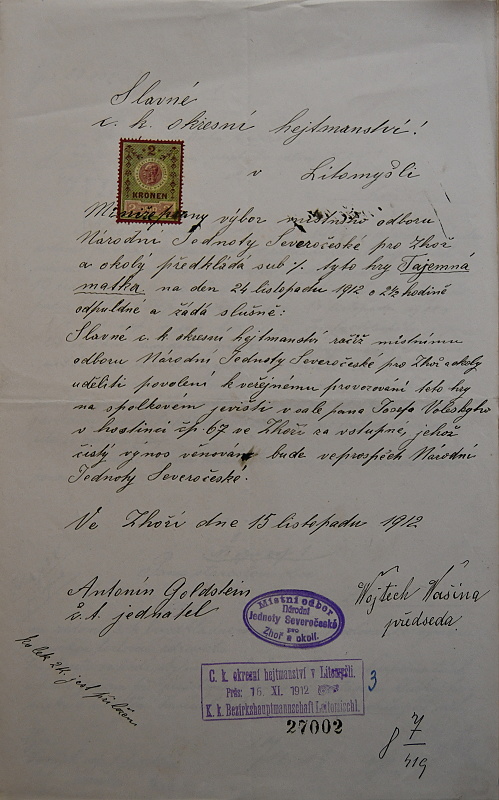 Slavné
c. k. okresní hejtmanství!
v Litomyšli
2
KRONEN
Níže psaný výbor místního odboru
Národní Jednoty Severočeské pro Zhoř
a okolý předkládá sub ·/. tyto hry Tajemná
matka. na den 24 listopadu 1912 o 2½ hodině
odpuldné a žádá slušně:
Slavné c. k. okresní hejtmanství račiž místnímu
odboru Národní Jednoty Severočeské pro Zhoř a okoly
uděliti povolení k veřejnému provozování této hry
na spolkovém jevišti v sale pana Josefa Voleského
v hostinci čp. 67 ve Zhoři za vstupné, jehož
čistý výnos věnovaný bude ve prospěch Národní
Jednoty Severočeské.
Ve Zhoři dne 15 listopadu 1912
Antonín Goldstein
t. č. jednatel
Wojtěch Wašina
předseda.
Místní odbor
Národní
Jednoty Severočeské
pro
Zhoř a okolí.
kolek 2K. jest přiložen
C. k. okresní hejtmanství v Litomyšli.
Präs: 16. XI. 1912
K. k. Bezirkshauptmannschaft Leitomischl.
3
27002
8 7/419